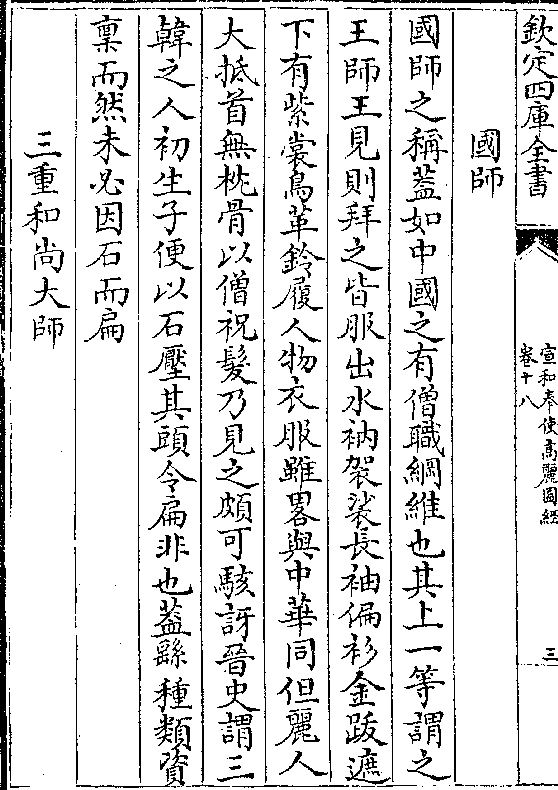 欽定四庫全書
宣和奉使高麗圖經
卷十八
三
國師
國師之稱蓋如中國之有僧職綱維也其上一等謂之
王師王見則拜之皆服出水衲袈裟長袖偏衫金跋遮
下有紫裳烏革鈴履人物衣服雖畧與中華同但麗人
大抵首無枕骨以僧祝髮乃見之頗可駭訝晉史謂三
韓之人初生子便以石壓其頭令扁非也蓋繇種類資
稟而然未必因石而扁
三重和尚大師